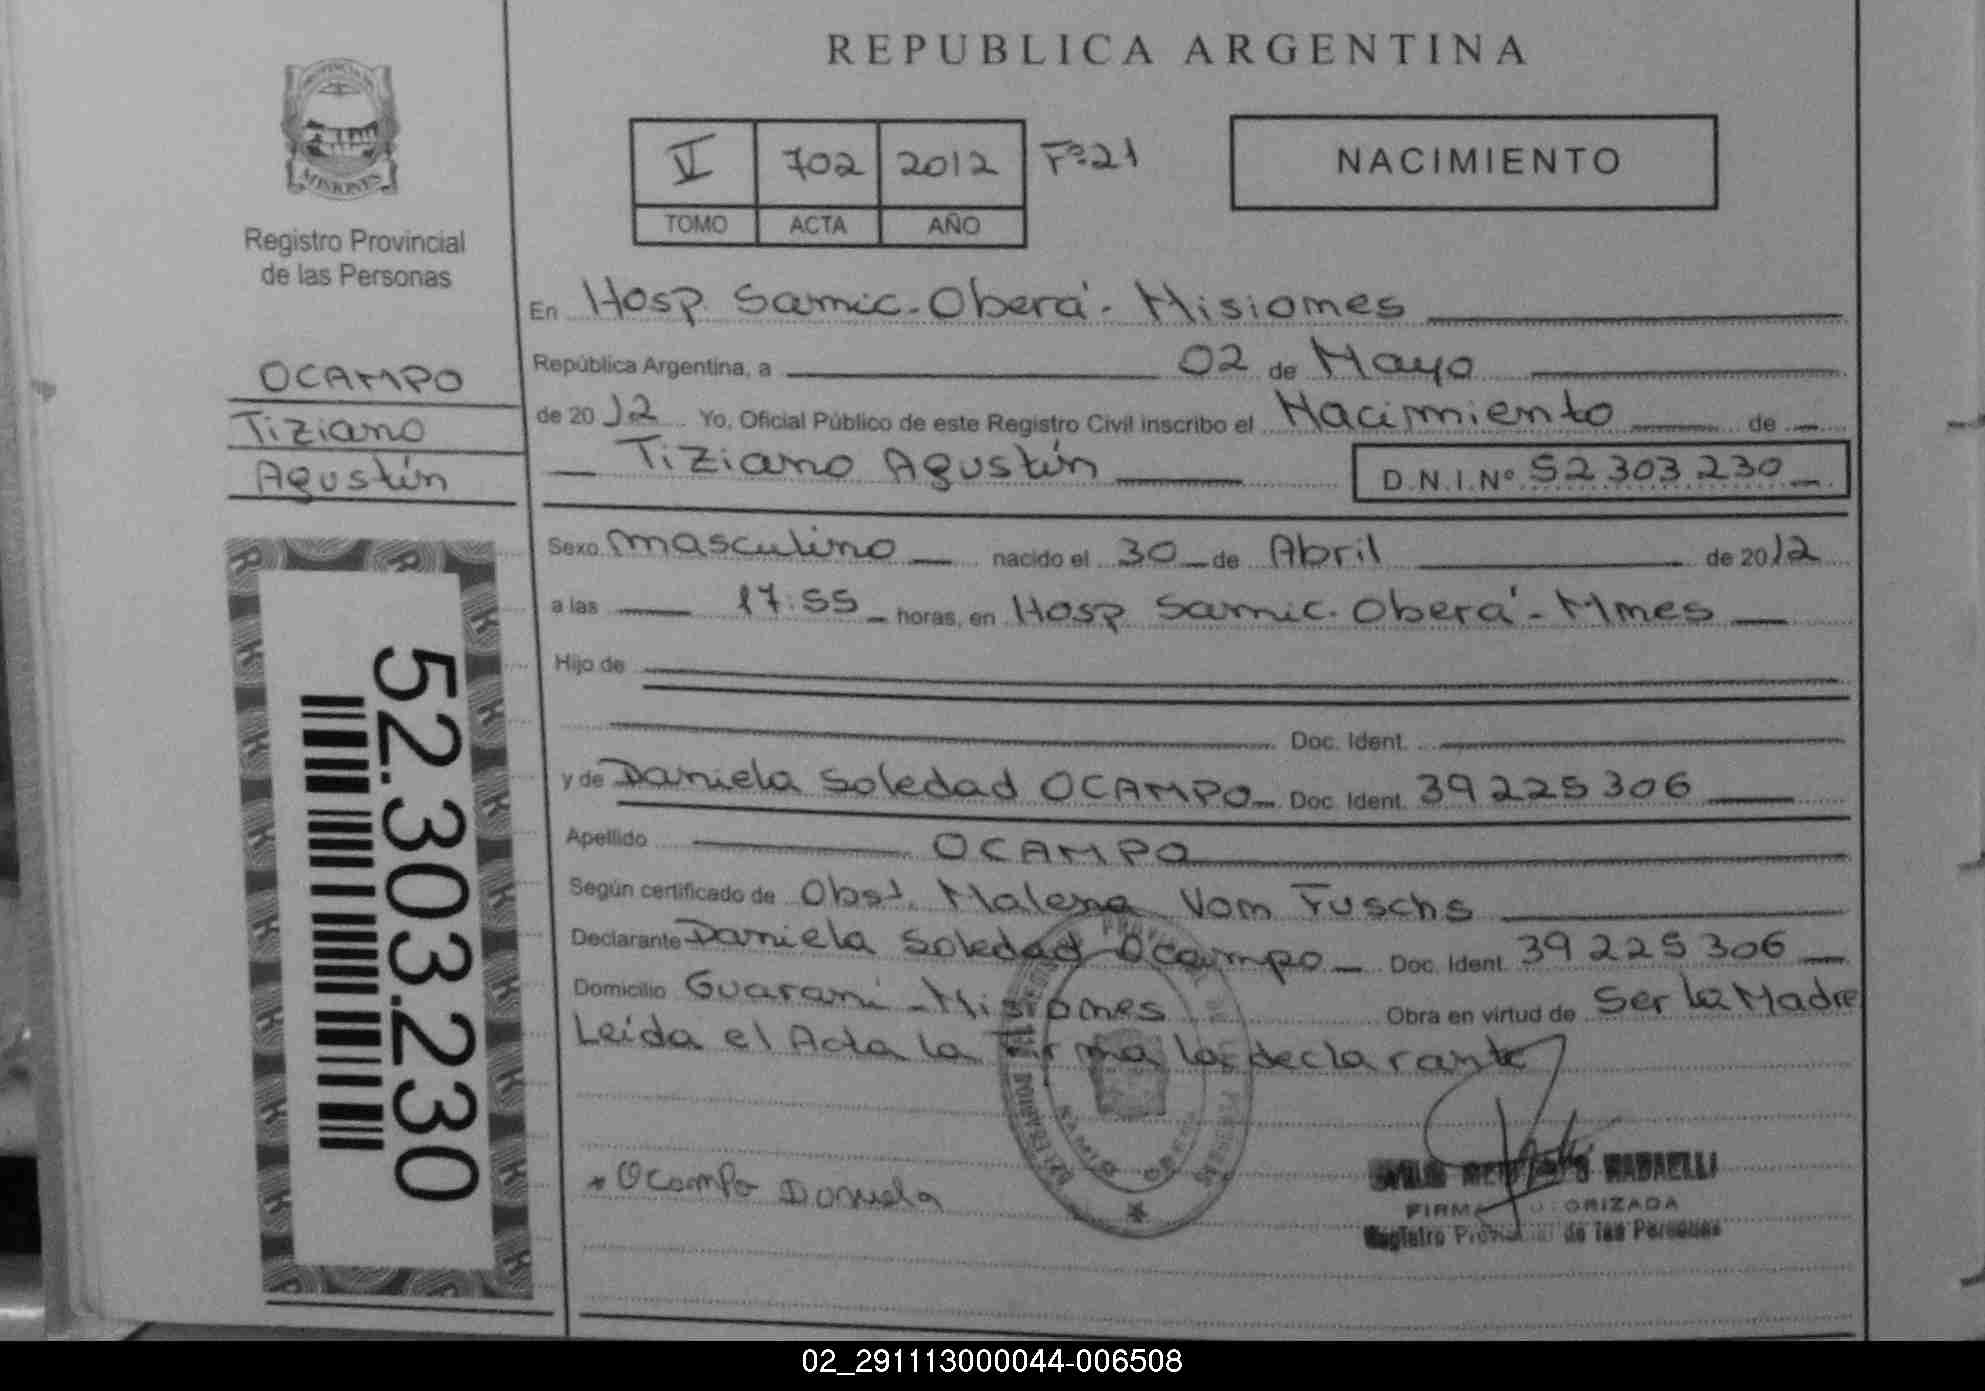 REPUBLICA ARGENTINA
PROVINCIA DE
MISIONES
Registro Provincial
de las Personas
V 702 2012 Fº21
TOMO ACTA AÑO
NACIMIENTO
OCAMPO
Tiziano
Agustín
52.303.230
En Hosp. Samic-Oberá-Misiones
República Argentina, a 02 de Mayo
de 2012 Yo, Oficial Público de este Registro Civil inscribo el Nacimiento de
Tiziano Agustín D.N.I.Nº 52 303 230
Sexo masculino nacido el 30 de Abril de 2012
a las 17:55 horas, en Hosp Samic-Oberá-Mnes
Hijo de
Doc. Ident.
y de Daniela Soledad OCAMPO Doc. Ident. 39 225 306
Apellido OCAMPO
Según certificado de Obst. Malena Von Fuschs
Declarante Daniela Soledad Ocampo Doc. Ident. 39 225 306
Domicilio Guaraní-Misiones Obra en virtud de Ser la Madre
Leída el Acta la firma la declarante
* Ocampo Daniela
FIRMA AUTORIZADA
Registro Provincial de las Personas
02_291113000044-006508